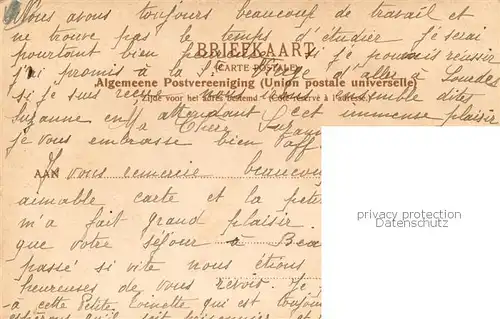 Nous avons toujours beaucoup de travail et
ne trouve pas le temps d'étudier je serai
pourtant bien si je pouvais réussir
BRIEFKAART
(CARTE POSTALE)
j'ai promis à la Vierge d'aller à Lourdes
Algemeene Postvereeniging (Union postale universelle)
si je suis reçue nous ensemble dites
Zijde voor het adres bestemd (Côté réservé à l'adresse)
Suzanne en attendant cet immense plaisir
Chère
je vous embrasse bien aff
AAN
Je vous remercie beaucou
aimable carte et la peti
m'a fait grand plaisir
que votre séjour à Bea
passé si vite nous étions
heureuses de vous revoir. Je
à cette Petite Toinette qui est toujou
espérons qu'il soit et
privacy protection
Datenschutz